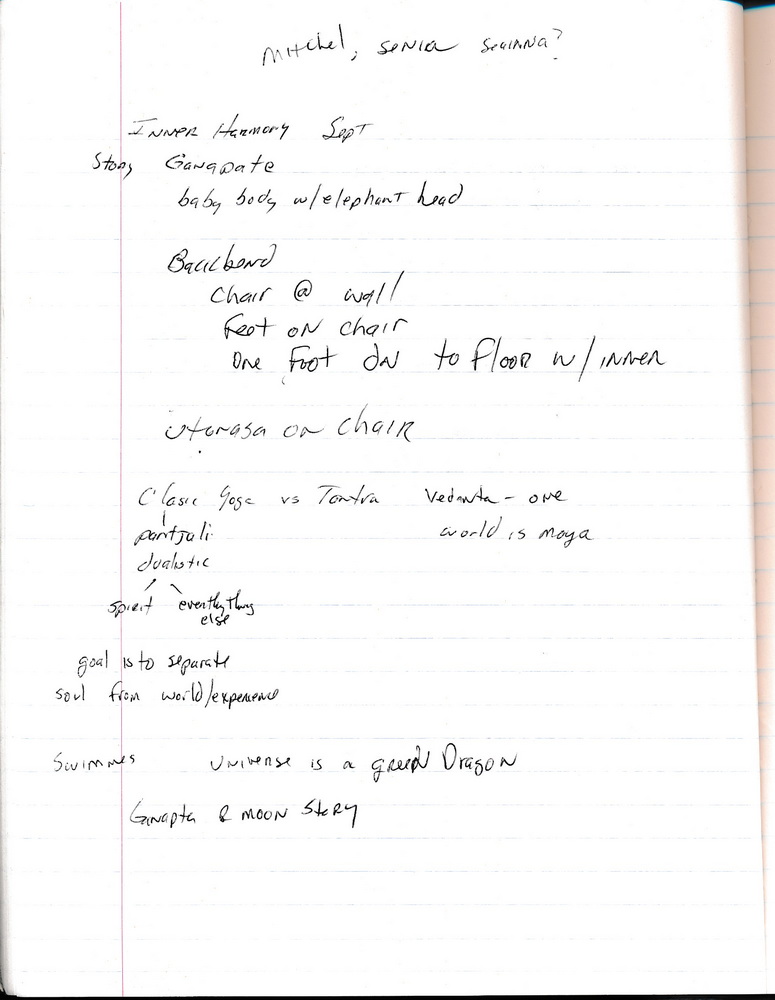 Mitchel, senia seainna?
Inner Harmony Sept
Story Ganapate
baby body w/elephant head
Backbend
Chair @ wall
Feet on chair
One Foot dn to floor w/inner
utorasa on chair
Clasic Yoga vs Tantra Vedanta - one
pantjali world is maya
dualistic
spirit everthything
else
goal is to separate
soul from world/experience
Swimmes Universe is a green Dragon
Ganapta & moon Story